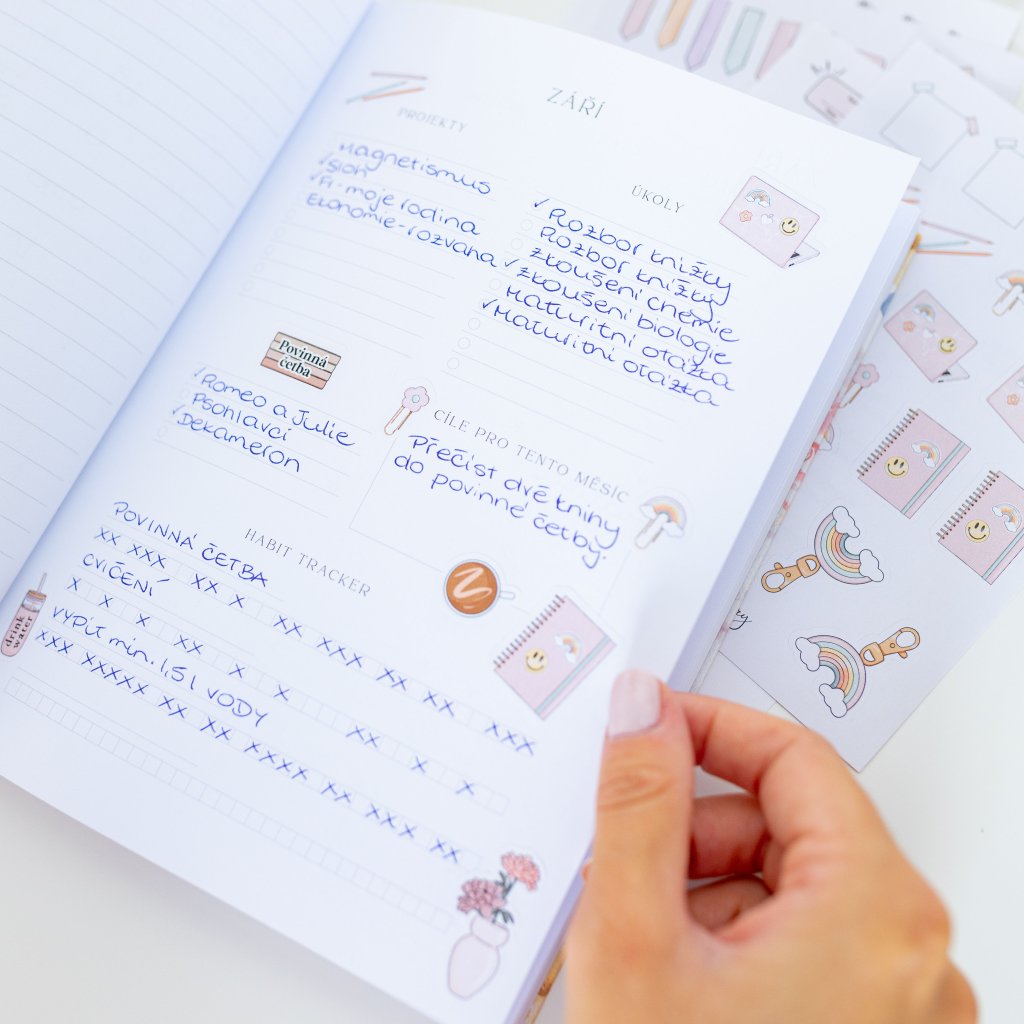 ZÁŘÍ
PROJEKTY
✓ Magnetismus
✓ Sloh
✓ Fi-moje rodina
Ekonomie-rozvaha
ÚKOLY
✓ Rozbor knížky
Rozbor knížky
zkoušení chemie
✓ zkoušení biologie
Maturitní otázka
✓ Maturitní otázka
Povinná
četba
✓ Romeo a Julie
Psohlavci
✓ Dekameron
CÍLE PRO TENTO MĚSÍC
Přečíst dvě knihy
do povinné četby.
HABIT TRACKER
POVINNÁ ČETBA
XX XXX XX X XX XXX XX XX XXX
CVIČENÍ
X X X XX X X XX X X
VYPÍT min. 1,5 l VODY
XXX XXXXX XX XX XXXX XX XXX XX
drink
water